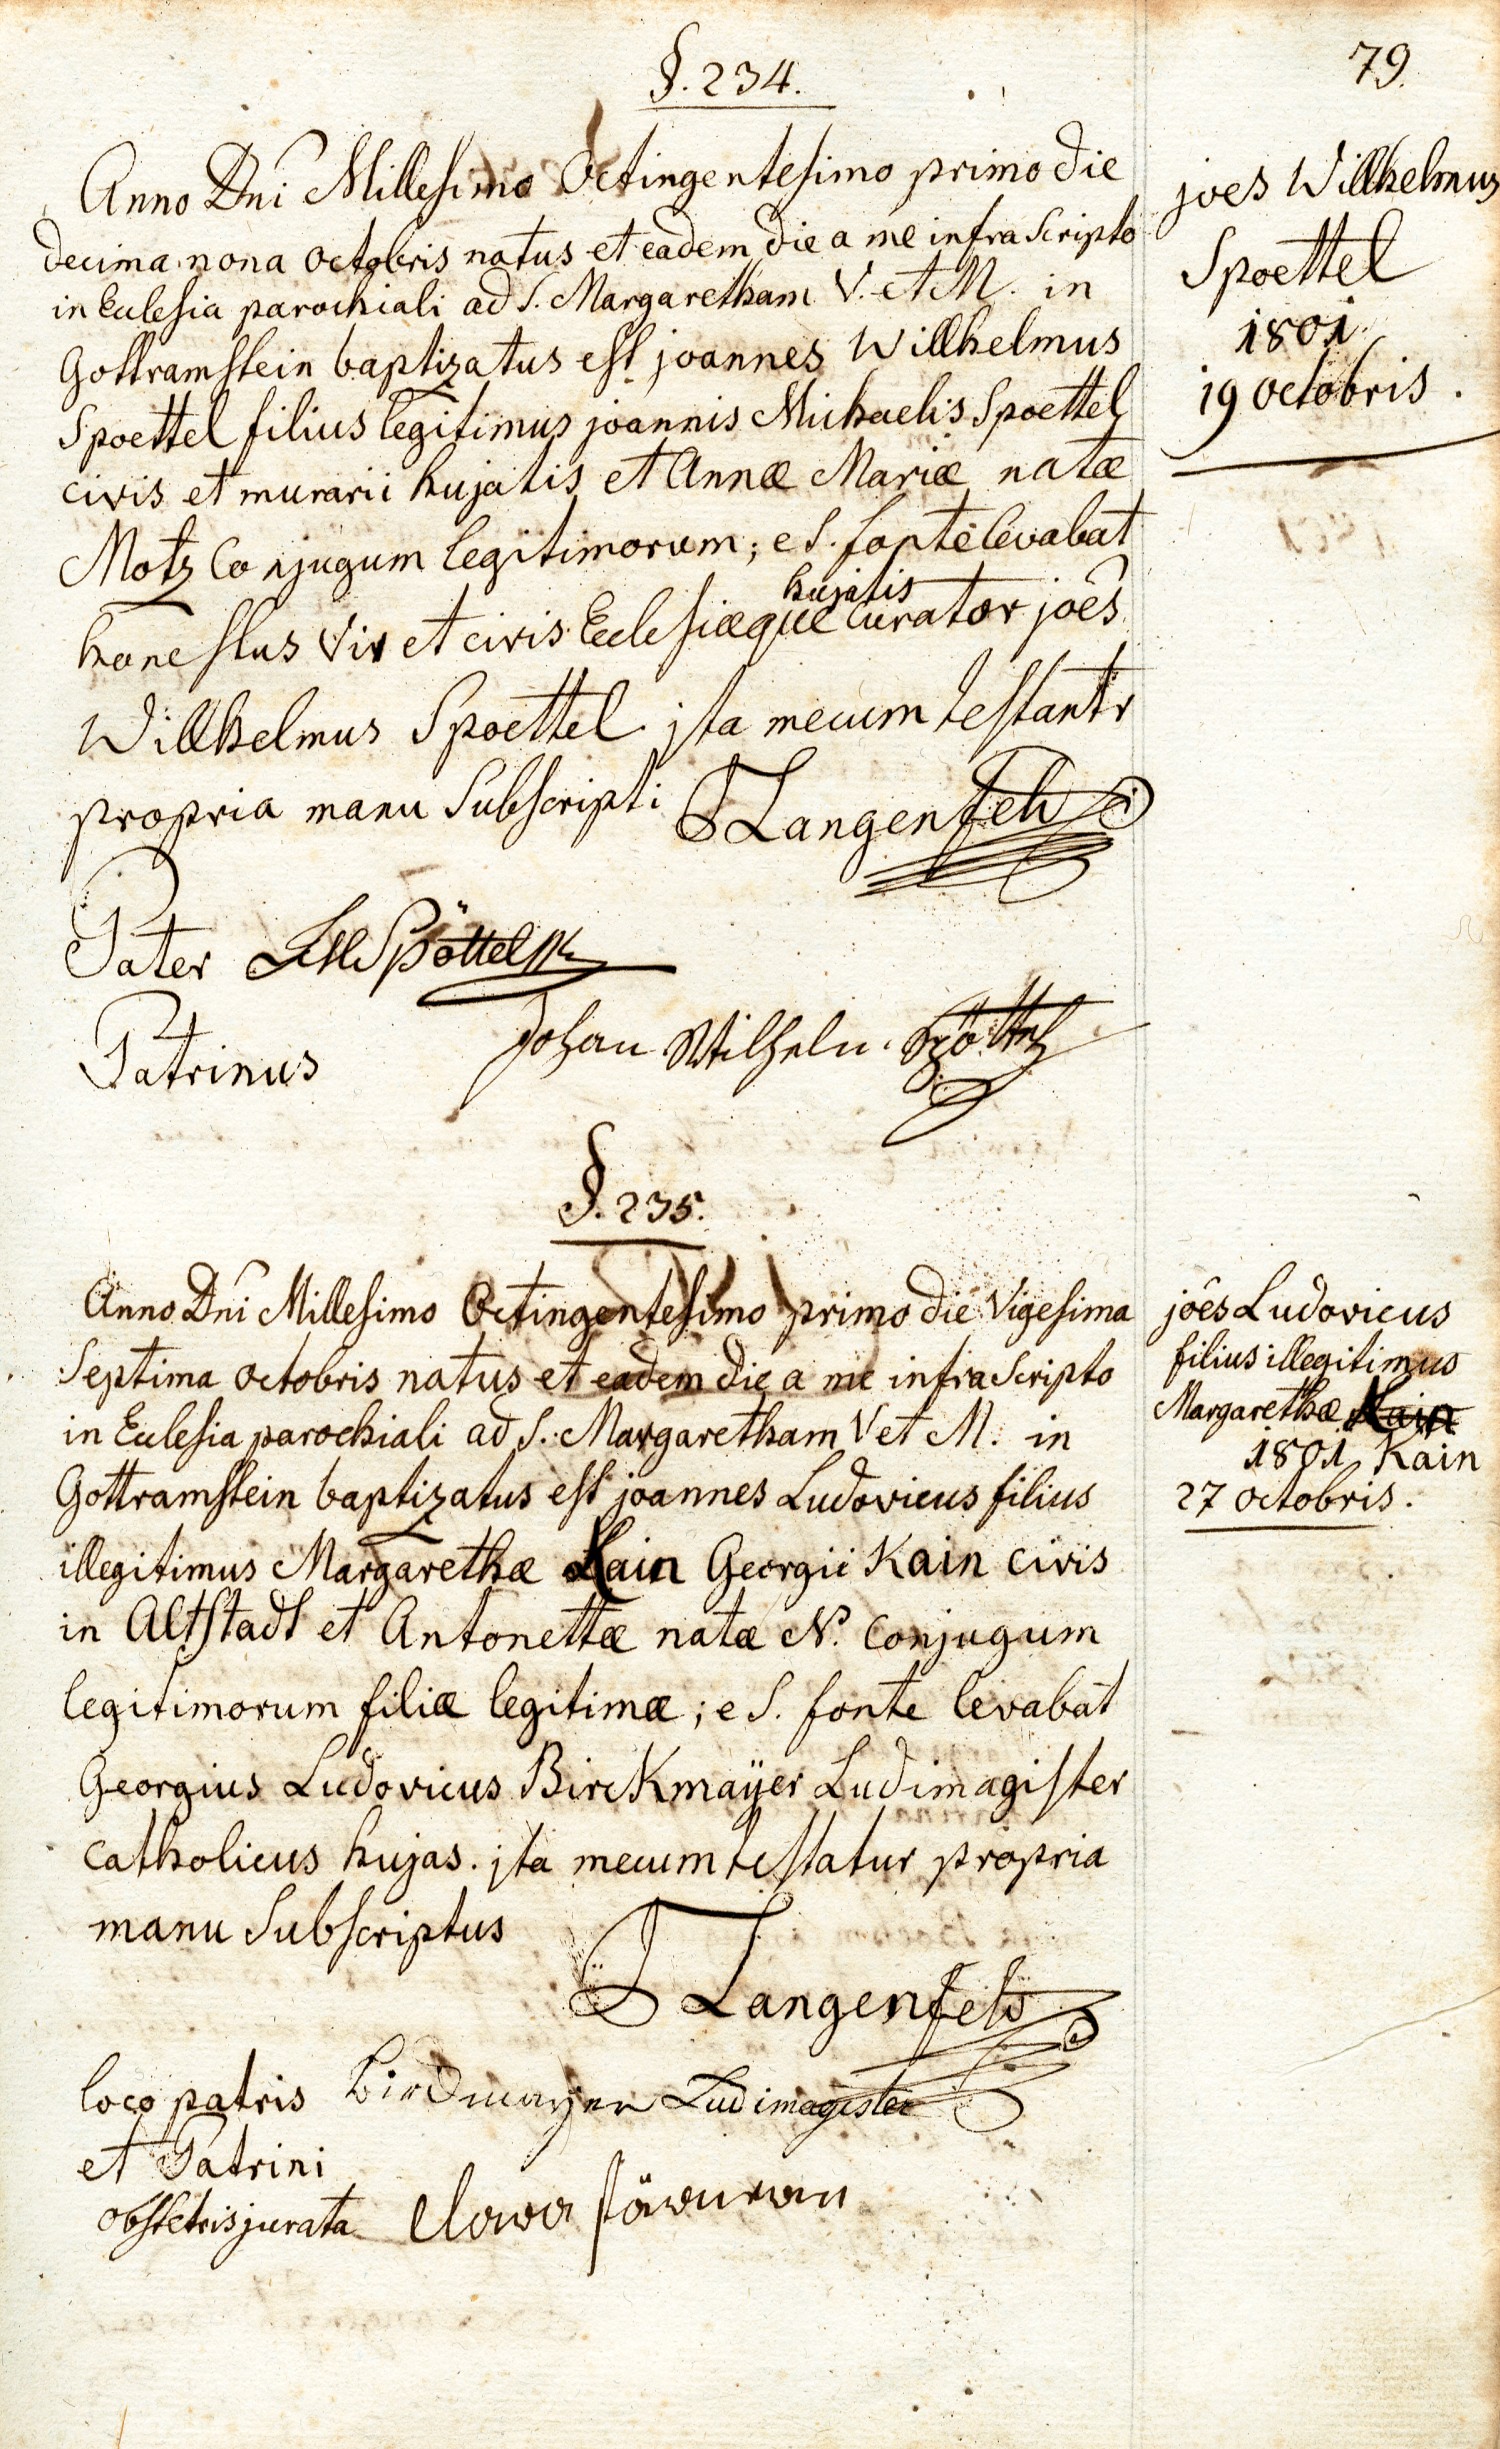 79.
§. 234.
Anno Dni Millesimo Octingentesimo primo die
decima nona octobris natus et eadem die a me infra scripto
in Eclesia parochiali ad S. Margaretham V. et M. in
Gottramstein baptizatus est joannes Willhelmus
Spoettel filius legitimus joannis Michaelis Spoettel
civis et murarii hujatis et Annæ Mariæ natæ
Motz Conjugum legitimorum; e S. fonte levabat
honestus Vir et civis Eclesiæque hujatis curator joês
Willhelmus Spoettel jta mecum testantr
propria manu Subscripti
Langenfels
Pater Spöttel
Patrinus Johan Wilhelm Spöttel
joes Willhelmus
Spoettel
1801.
19 octobris.
§. 235.
Anno Dni Millesimo Octingentesimo primo die Vigesima
Septima octobris natus et eadem die a me infra Scripto
in Eclesia parochiali ad S. Margaretham V et M. in
Gottramstein baptizatus est joannes Ludovicus filius
illegitimus Margarethæ Kain Georgii Kain civis
in Altstadt et Antonettæ natæ N. Conjugum
legitimorum filiæ legitimæ; e S. fonte levabat
Georgius Ludovicus Birckmaÿer Ludimagister
catholicus hujas. jta mecum testatur propria
manu Subscriptus
Langenfels
loco patris Birckmayer Ludimagister
et Patrini
obstetrix jurata
joês Ludovicus
filius illegitimus
Margarethæ Kain
1801. Kain
27 octobris.